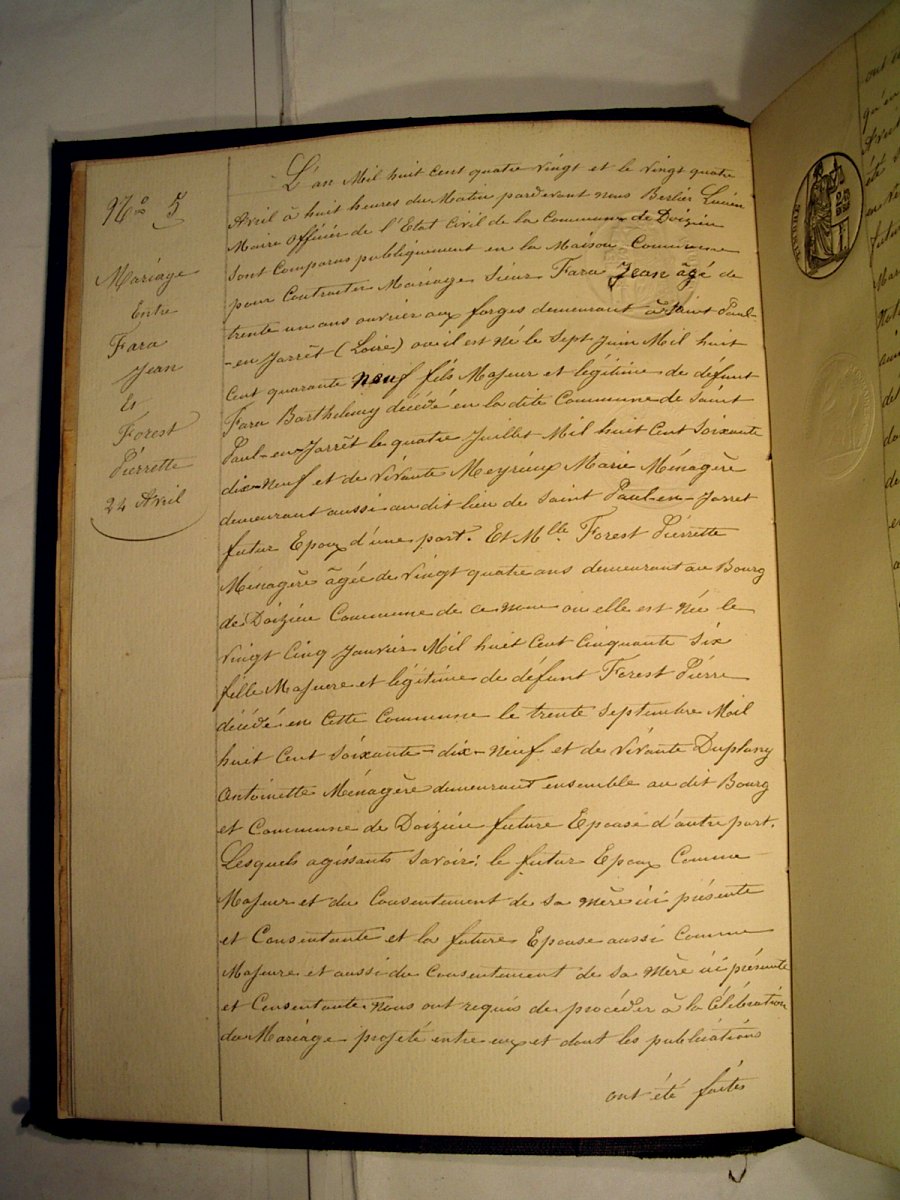 N° 5
Mariage
Entre
Fara
Jean
Et
Forest
Pierrette
24 Avril
L'an Mil huit cent quatre vingt et le vingt quatre
Avril à huit heures du Matin pardevant nous Berlier Lucien
Maire Officier de l'Etat Civil de la Commune de Doizieu
Sont Comparus publiquement en la Maison Commune
pour Contracter Mariage Sieur Fara Jean âgé de
trente un ans ouvrier aux forges demeurant à Saint Paul-
-en Jarrêt (Loire) où il est né le Sept Juin Mil huit
Cent quarante neuf fils Majeur et légitime de défunt
Fara Barthélemy décédé en la dite Commune de Saint
Paul-en-Jarrêt le quatre Juillet Mil huit Cent Soixante
dix-Neuf et de Vivante Meyrieux Marie Ménagère
demeurant aussi au dit lieu de Saint Paul-en-Jarret
futur Epoux d'une part. Et Mlle Forest Pierrette
Ménagère âgée de Vingt quatre ans demeurant au Bourg
de Doizieu Commune de ce nom où elle est Née le
Vingt Cinq Janvier Mil huit Cent Cinquante Six
fille Majeure et légitime de défunt Forest Pierre
décédé en Cette Commune le trente Septembre Mil
huit Cent Soixante-dix-Neuf et de Vivante Duplany
Antoinette Ménagère demeurant ensemble au dit Bourg
et Commune de Doizieu future Epouse d'autre part.
Lesquels agissants Savoir: le futur Epoux Comme
Majeur et du Consentement de sa mère ici présente
et Consentante et la future Epouse aussi Comme
Majeure et aussi du Consentement de sa Mère ici présente
et Consentante Nous ont requis de procéder à la Célébration
du Mariage projeté entre eux et dont les publications
ont été faites